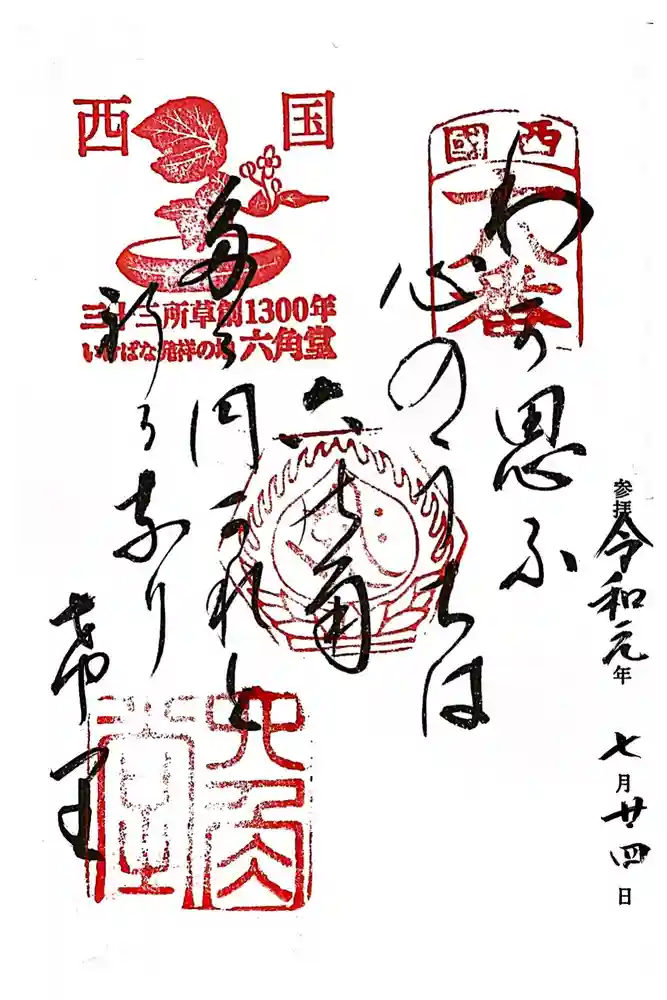 参拝 令和元年 七月廿四日
西國
十八番
わか思ふ
心のうちは
六の角
多ゝ円かれと
祈るなり
希里
西国
三十三所草創1300年
いけばな発祥の地 六角堂
六角堂